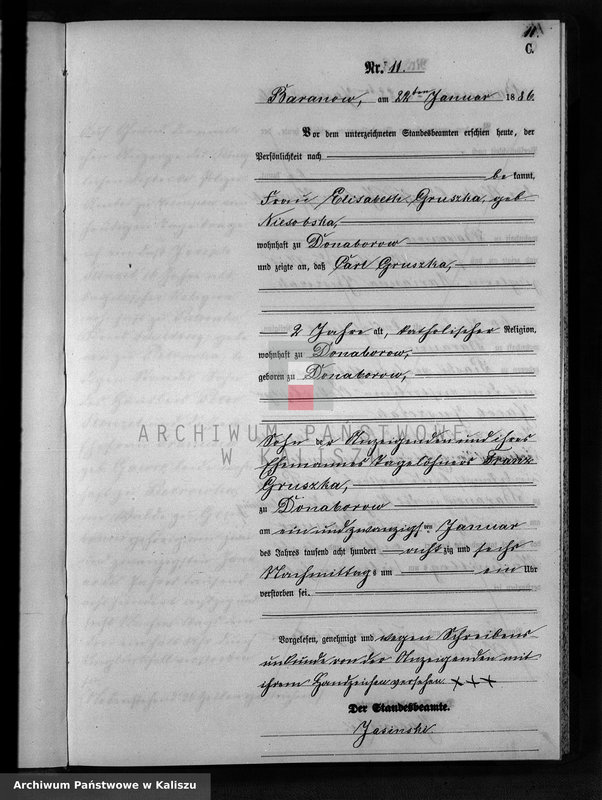 11.
C.
Nr. 11.
Baranow, am 22ten Januar 1886.
Vor dem unterzeichneten Standesbeamten erschien heute, der
Persönlichkeit nach
be kannt,
Frau Elisabeth Gruszka, geb
Niesobska,
wohnhaft zu Donaborow
und zeigte an, daß Carl Gruszka,
2 Jahre alt, katholischer Religion,
wohnhaft zu Donaborow,
geboren zu Donaborow,
ARCHIWUM PAŃSTWOWE
W KALISZU
Sohn der Anzeigenden und ihres
Ehemannes Tagelöhners Franz
Gruszka,
zu Donaborow
am ein und zwanzigsten Januar
des Jahres tausend acht hundert acht zig und sechs
Nachmittags um ein Uhr
verstorben sei.
Vorgelesen, genehmigt und wegen Schreibens-
unkunde von der Anzeigenden mit
ihrem Handzeichen versehen. +++
Der Standesbeamte.
Jasinski.
Archiwum Państwowe w Kaliszu